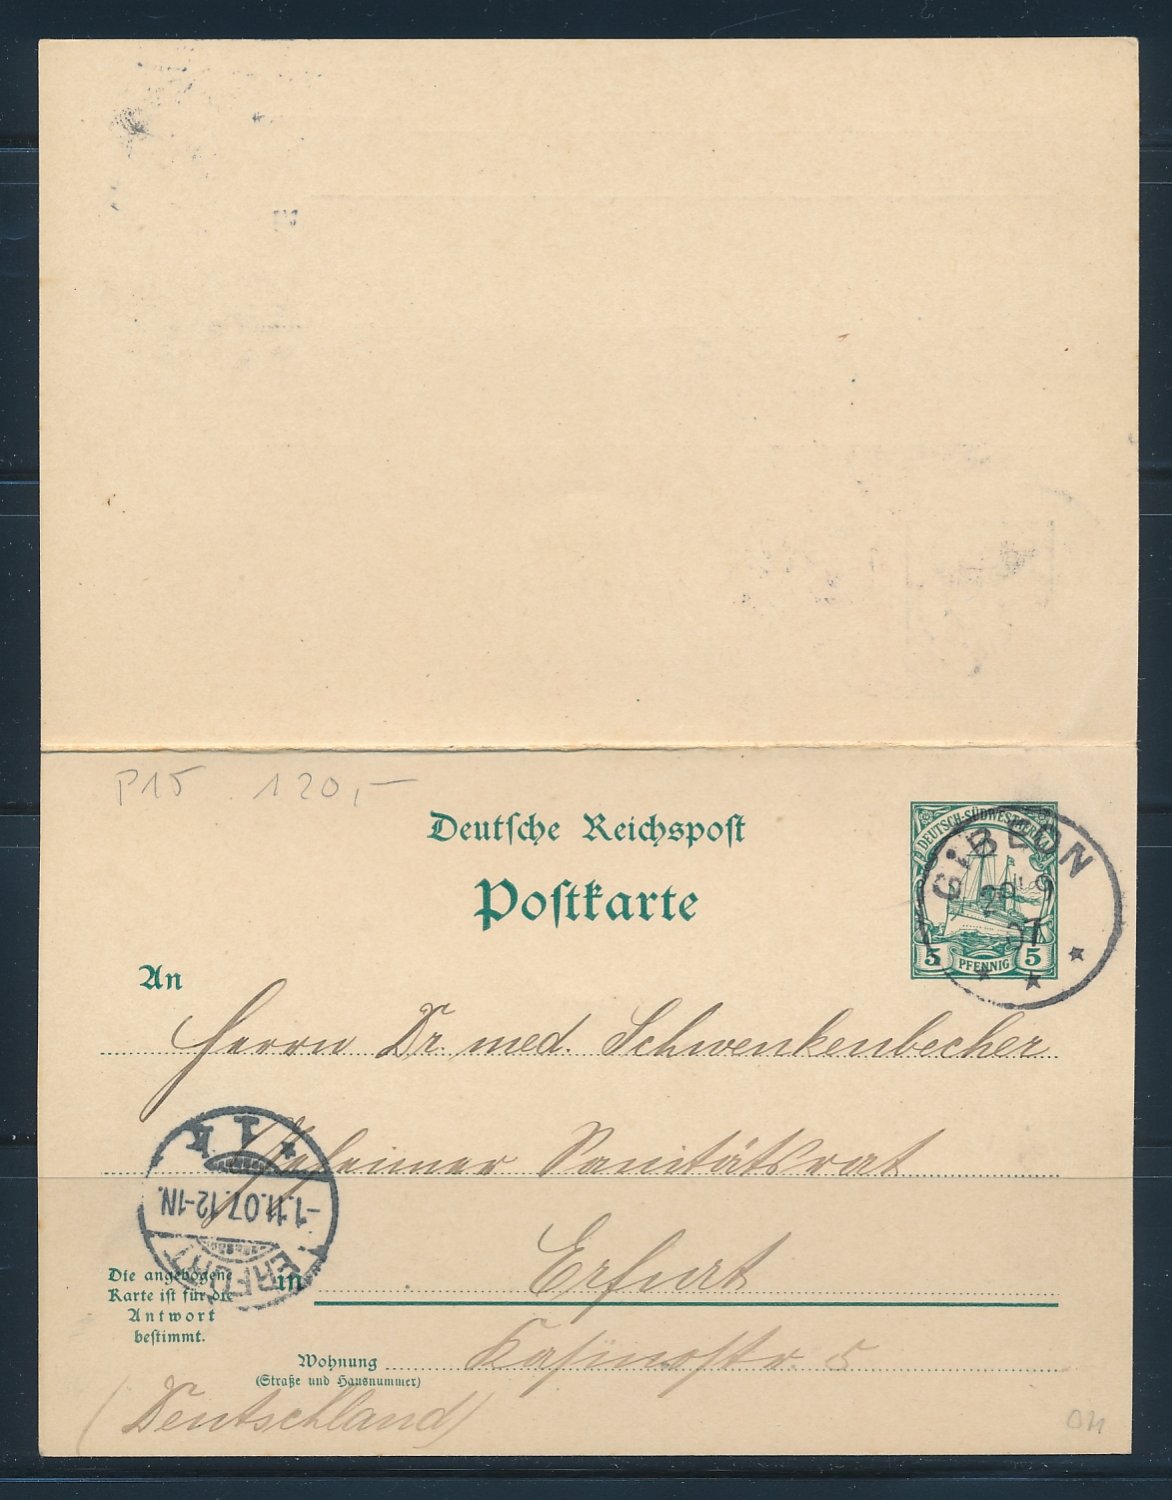 P15 120,-
Deutsche Reichspost
Postkarte
DEUTSCH-SÜDWESTAFRIKA
5 PFENNIG 5
GIBEON
07
An
Herrn Dr. med. Schwenkenbecher
Geheimer Sanitätsrat
in Erfurt
Wohnung Kasinostr. 5
(Straße und Hausnummer)
(Deutschland)
Die angebogene
Karte ist für die
Antwort
bestimmt.
ERFURT
-1.11.07.12-1N.